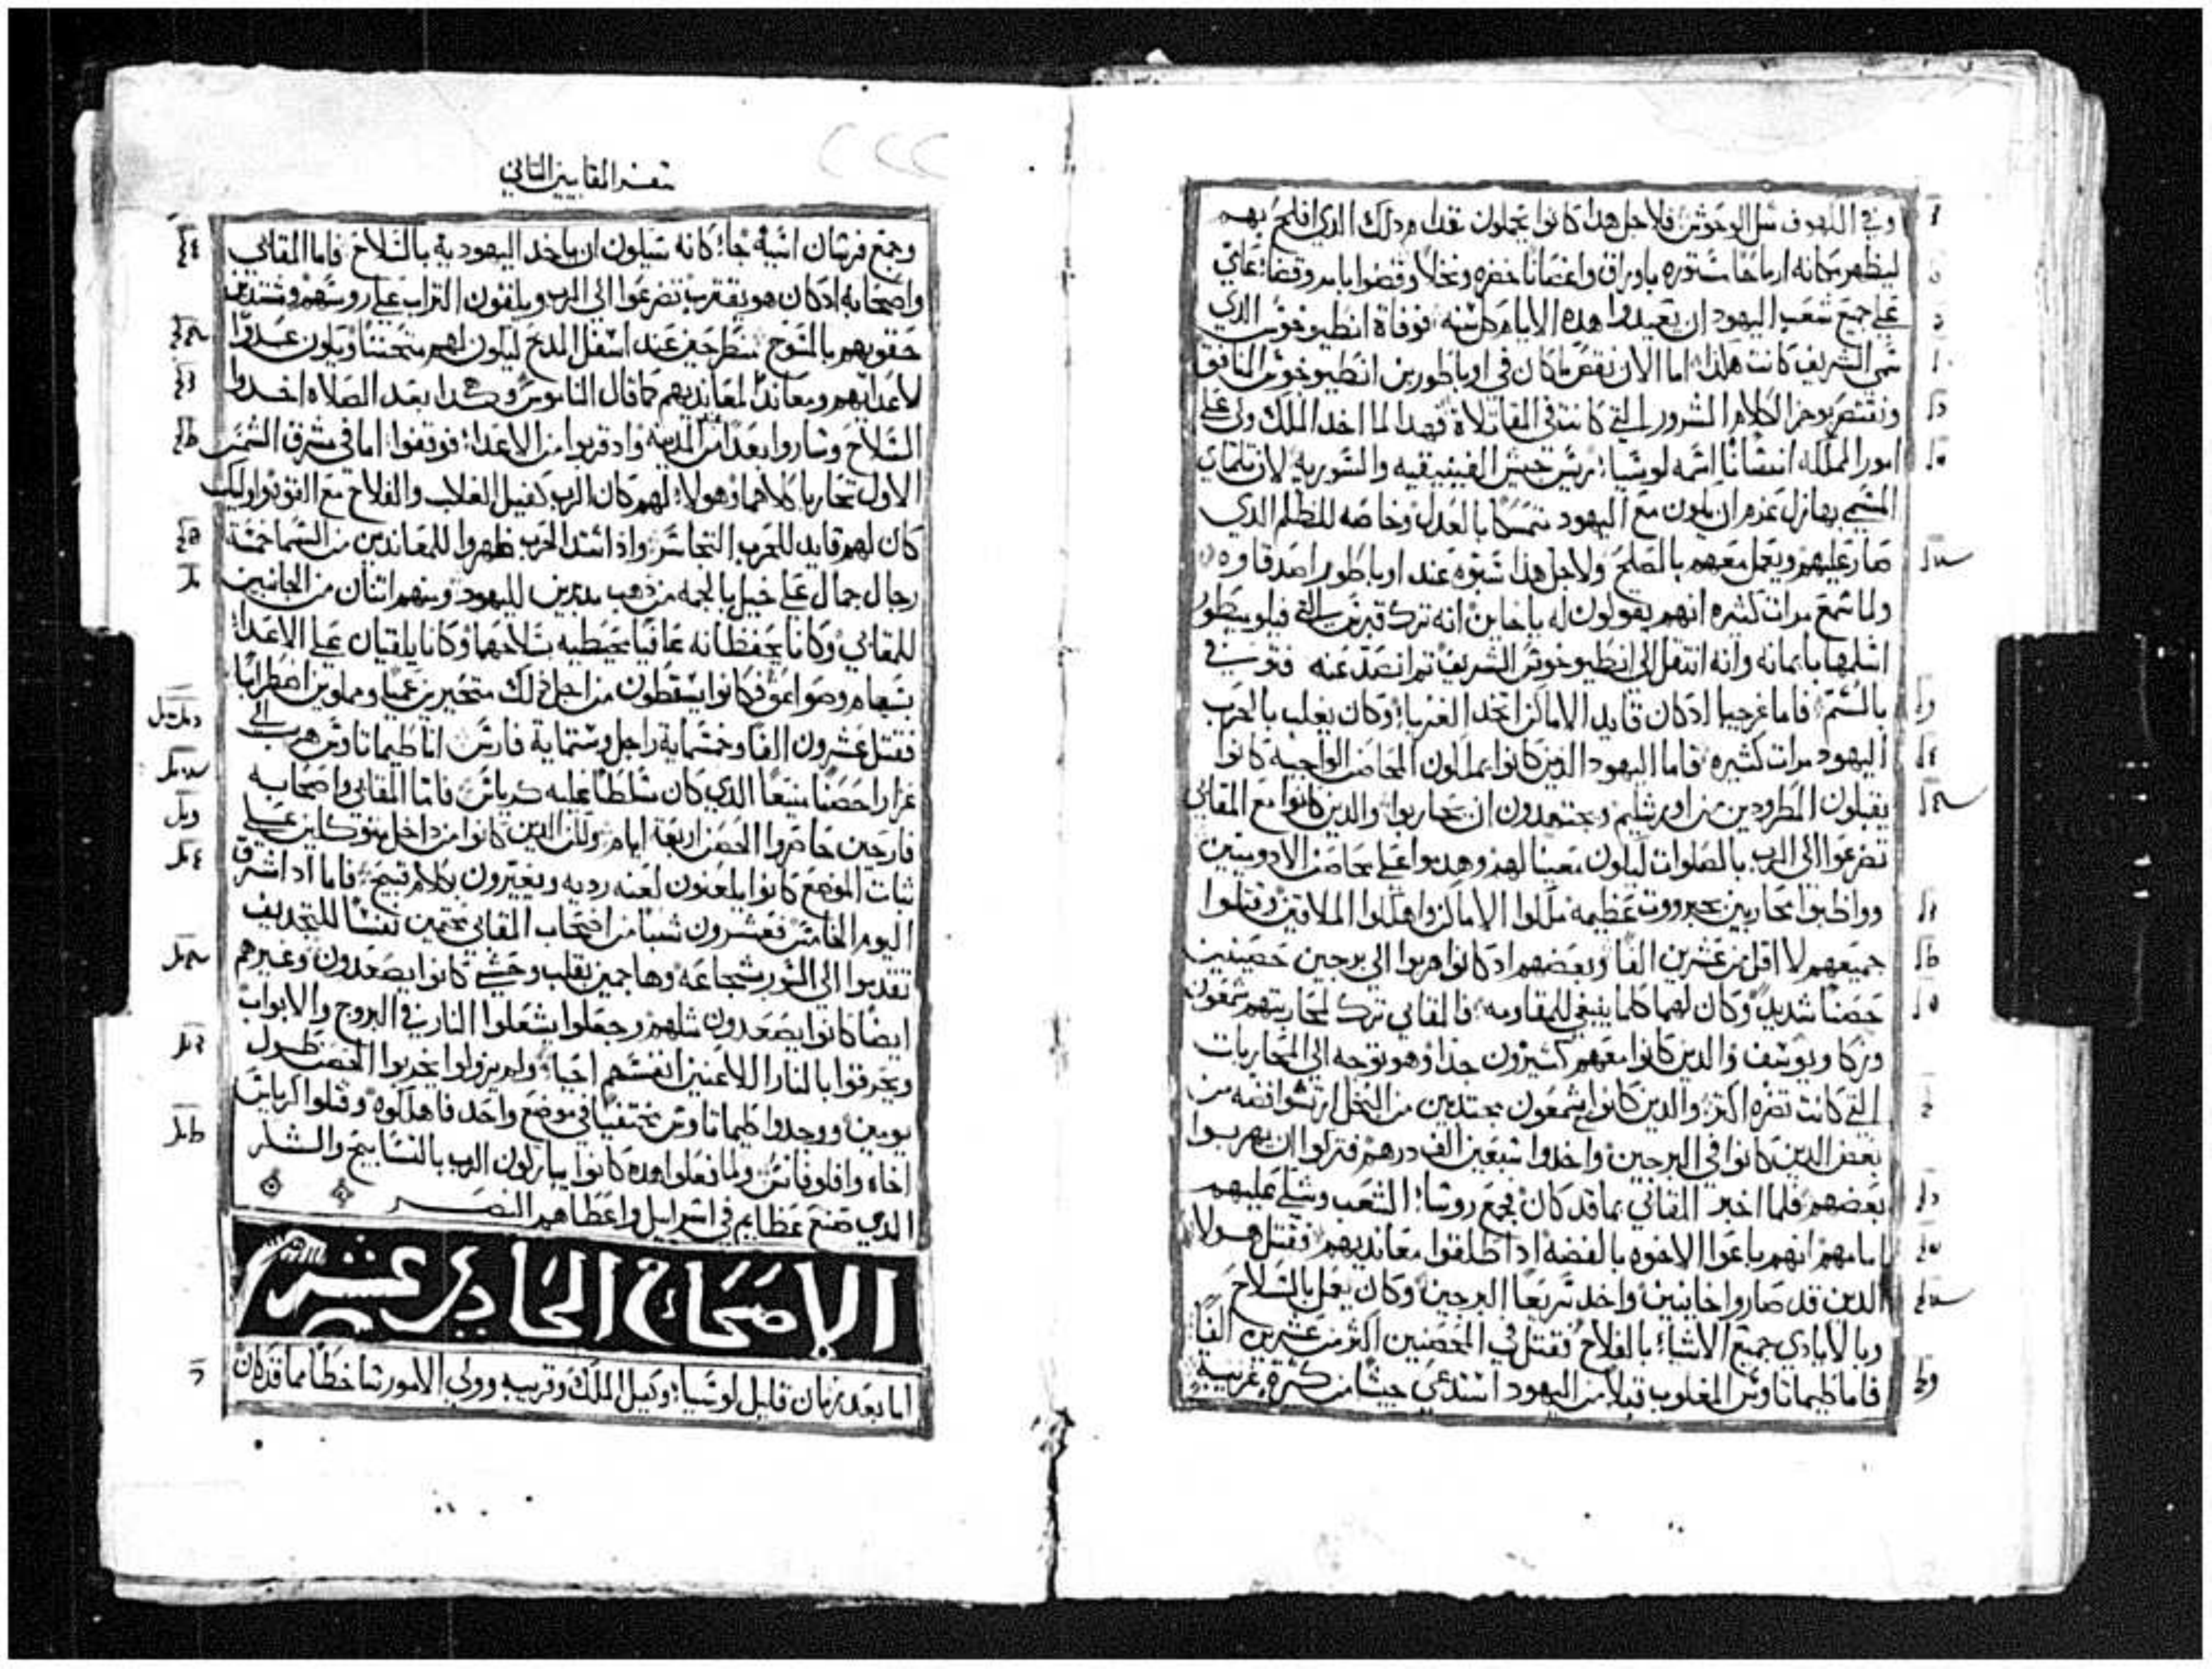 وفي الكهوف مثل الوحوش فلاجل هدا كانوا يحملون تقدامه دلك الدي افلح بهم
ليظهر مكانه ارماحًا مستوره باوراق واغصانا خضره ونخلا وقضوا بامر وقضاء عاي
علي جميع شعب اليهود ان يعيدوا هده الايام كل سنه فوفاة انطيوخوس الدي
سمي الشريف كانت هكدا اما الان نقص ماكان في اوباطور بن انطيوخوس المنافق
ونختصر بوجز الكلام الشرور التي كانت في المقاتلاة فهدا لما اخد الملك ولى علي
امور المملكه انسانًا اسمه لوسيا رييس جيش الفينيقيه والسوريه لان تلماي
المسمي بهازل عزم ان يكون مع اليهود متمسكًا بالعدل وخاصه للظلم الدي
صار عليهم ويعمل معهم بالصلح ولاجل هدا شنوه عند اوباطور اصدقاوه
ولما سمع مرات كثيره انهم يقولون له يا خاين انه ترك قبرس التي فيلوميطور
اسلمها بايمانه وانه انتقل الي انطيوخوس الشريف ثم انصد عنه فتوفي
بالسم فاما غرجيا ادكان قايد الاماكن اتخد الغربا وكان يغلب بالحرب
اليهود مرات كثيره فاما اليهود الدين كانوا يملكون المحاصن الواجبه كانوا
يقبلون المطرودين من اورشليم ويجتهدون ان يحاربوا والدين كانوا مع المقابي
تضرعوا الي الرب بالصلوات ليكون معينا لهم وهجموا علي محاصن الادوميين
وواظبوا محاربين بجبرووت عظيمه ملكوا الاماكن واهلكوا الملاقين وقتلوا
جميعهم لا اقل من عشرين الفًا وبعضهم ادكانوا هربوا الي برجين حصينين
حصنًا شديدً وكان لهما كلما ينبغي للمقاومه فالمقابي ترك لمحاربتهم شمعون
وزكا ويوسف والدين كانوا معهم كثيرون جدًا وهو توجه الي المحاربات
التي كانت تضره اكثر والدين كانوا بشمعون مجتدبين من البخل ارتشوا فضه من
بعض الدين كانوا في البرجين واخدوا سبعين الف درهم فتركوا ان يهربوا
بعضهم فلما اخبر المقابي بما قد كان فجمع روسا الشعب وشكي عليهم
امامهم انهم باعوا الاخوه بالفضة اد اطلقوا معانديهم فقتل هولا
الدين قد صاروا خاينين واخد سريعًا البرجين وكان يعمل بالسلاح
وبالايادي جميع الاشيا بالفلاح فقتل في المحصنين اكثر من عشرين الفًا
فاما طيماتاوس المغلوب قبلا من اليهود استدعي جيشا من كثرة غريبه
سفر المقابيين الثاني
وجمع فرسان اسيه جا كانه سيكون ان ياخد اليهودية بالسلاح فاما المقابي
واصحابه ادكان هو يقترب تضرعوا الي الرب ويلقون التراب علي روسهم ومشتدين
حقويهم بالمسوح منطرحين عند اسفل المدبح ليكون لهم متحننًا ويكون عدوًا
لاعدايهم ومعاندًا لمعانديهم كما قال الناموس وهكدا بعد الصلاه اخدوا
السلاح وساروا بعدًا من المدينه واد قربوا من الاعدا فوقفوا اما في مشرق الشمس
الاول تحاربا كلاهما وهولا لهم كان الرب كفيل الغلاب والفلاح مع القوه واوليك
كان لهم قايد للحرب التجاسر واد اشتد الحرب ظهروا للمعاندين من السما خمسة
رجال جمال علي خيل بالجمه من دهب مدبرين لليهود ومنهم اثنان من الجانبين
للمقابي وكانا يحفظانه عافيا محيطيه بسلاحهما وكانا يلقيان علي الاعدا
بسهام وصواعق فكانوا يسقطون من اجل دلك متحيرين عميا ومملوين اضطرابًا
فقتل عشرون الفا وخمسماية راجل وستماية فارس اما طيماتاوس هرب الي
غزارا حصنا منيعًا الدي كان مسلطًا عليه كرياس فاما المقابي واصحابه
فارحين حاصروا الحصن اربعة ايام ولكن الدين كانوا من داخل متوكلين علي
ثبات الموضع كانوا يلعنون لعنه رديه ويعيرون بكلام قبيح فاما اد اشرق
اليوم الخامس فعشرون شبا من اصحاب المقابي محتمين نفسًا للتجديف
تقدموا الي السور بشجاعه وهاجمين بقلب وحشي كانوا يصعدون وغيرهم
ايضًا كانوا يصعدون مثلهم وجعلوا يشعلوا النار في البروج والابواب
ويحرقوا بالنار اللاعنين انفسهم احياء ولم يزولوا يخربوا الحصن طول
يومين ووجدوا طيماتاوس مختفيا في موضع واحد فاهلكوه وقتلوا كرياس
اخاه وافلوفانس ولما فعلوا هده كانوا يباركون الرب بالتسابيح والشكر
الدي صنع عظايم في اسراييل واعطاهم النصر
الاصحاح الحادي عشر
اما بعد زمان قليل لوسيا وكيل الملك وقريبه وولي الامور ساخطًا مما قدكان